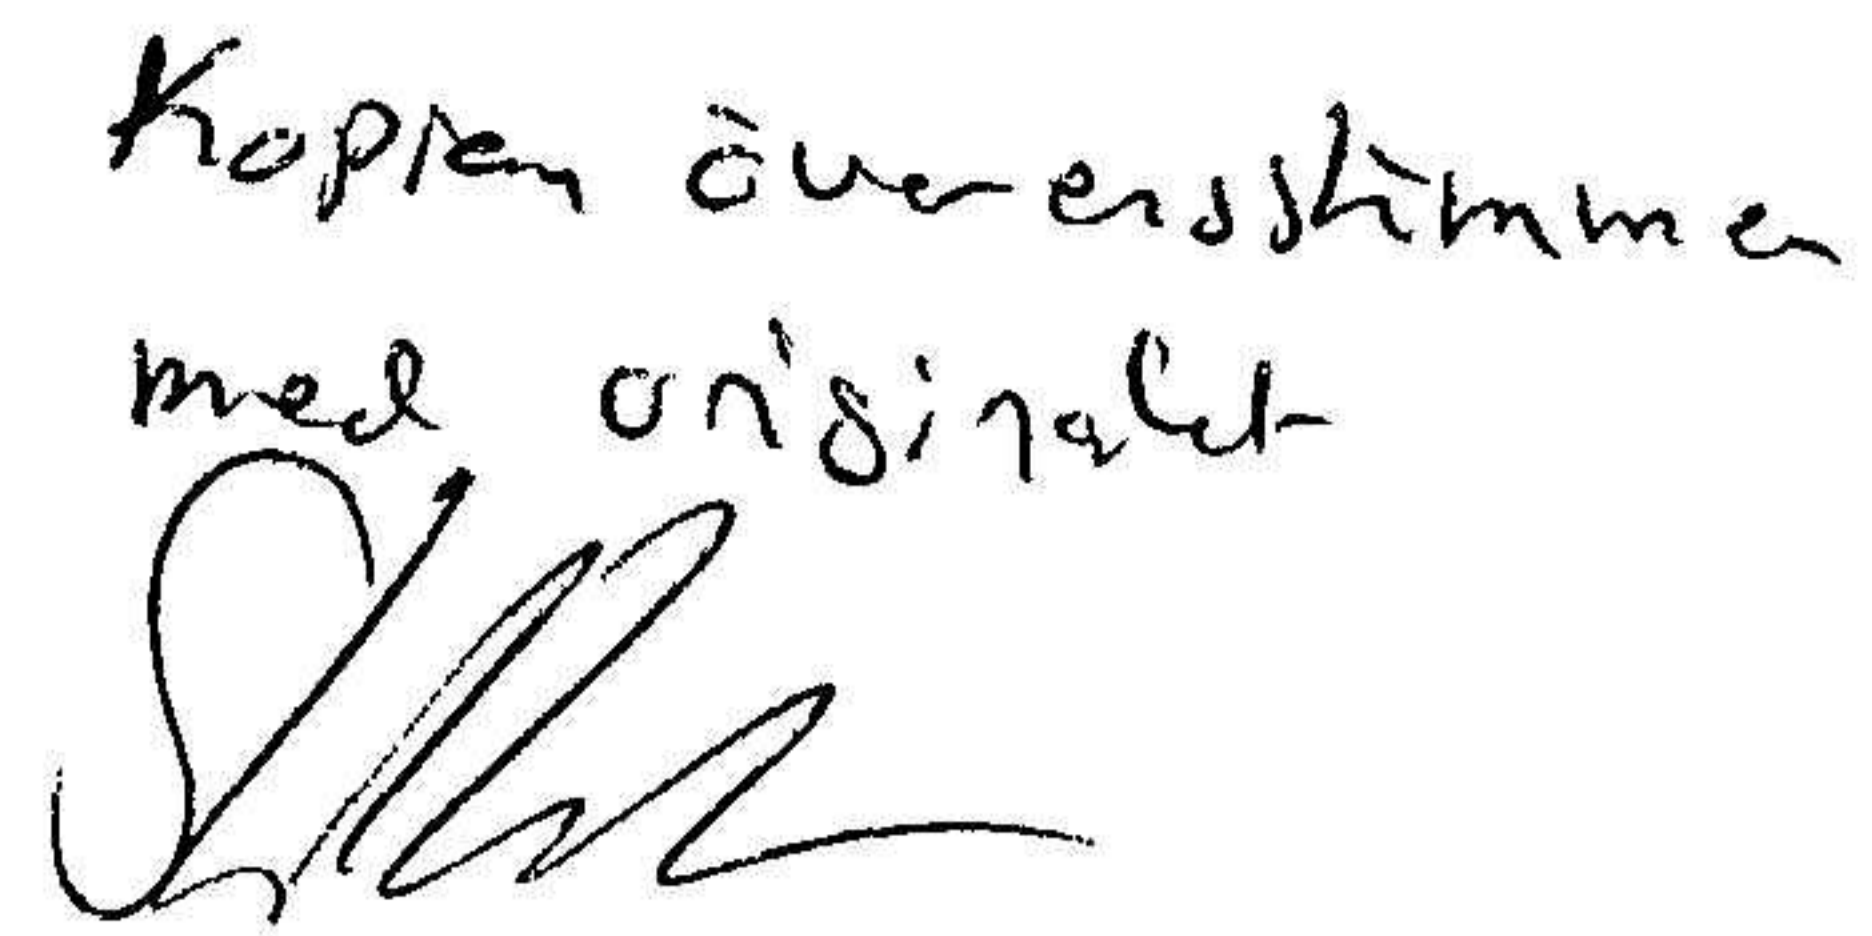 Kopien överensstimmer
med originalet